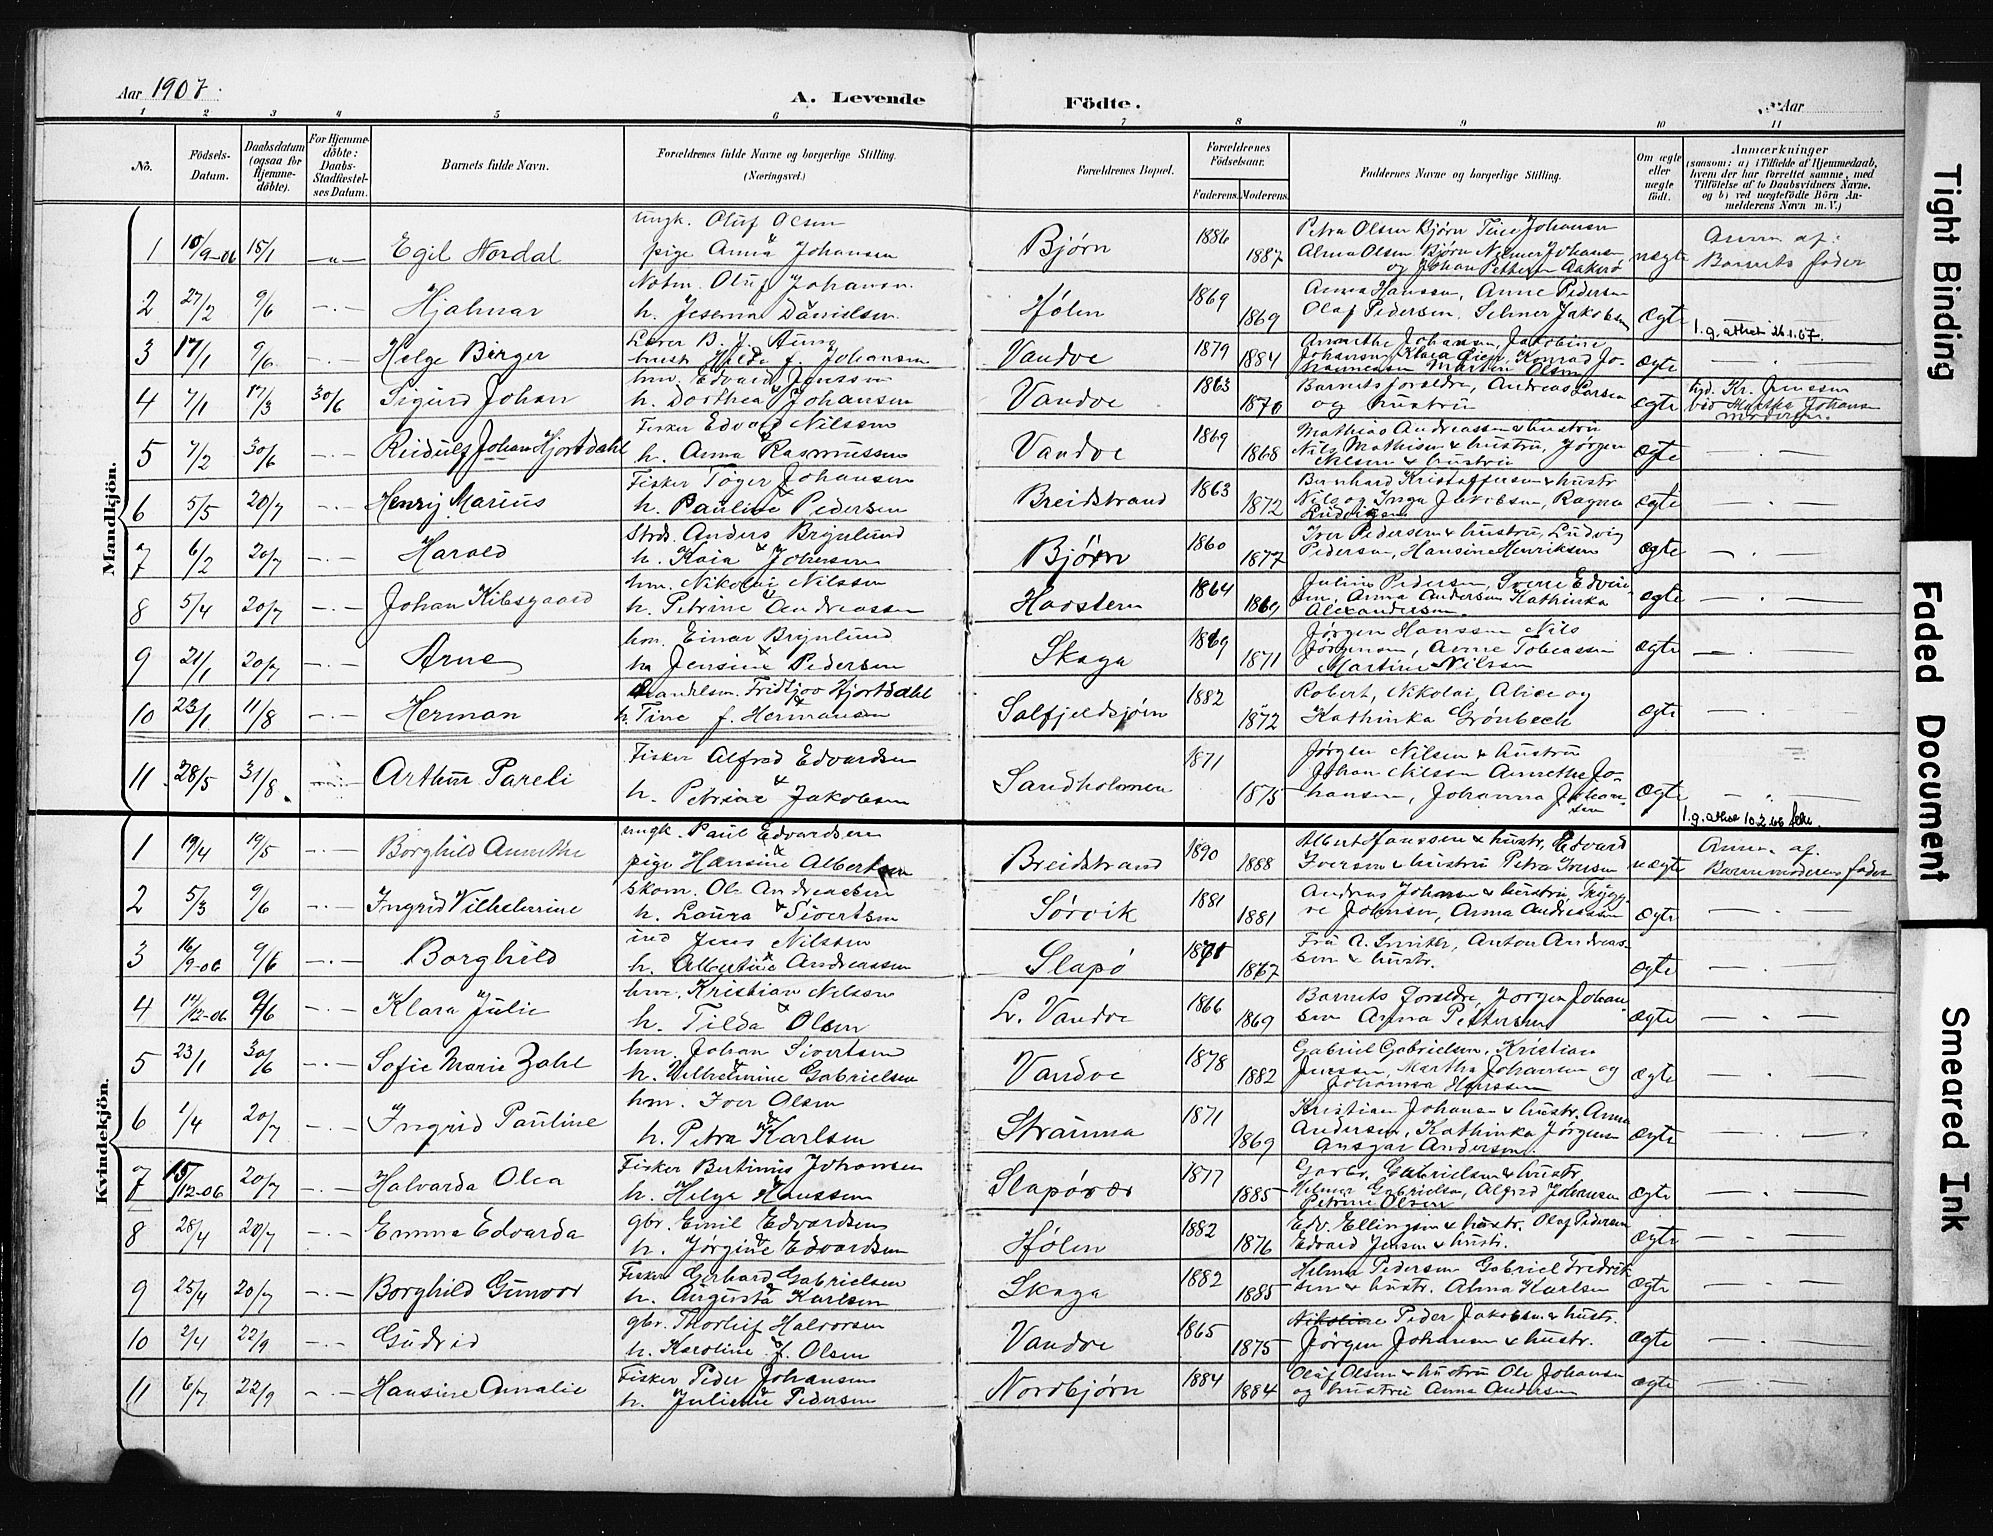 Aar 1907.
A. Levende Födte.
Aar
1 2 3 4 5 6 7 8 9 10 11
No.
Födsels-Datum.
Daabsdatum (ogsaa for Hjemme-döbte).
For Hjemme-döbte: Daabs-Stadfæstel-ses Datum.
Barnets fulde Navn.
Forældrenes fulde Navne og borgerlige Stilling.
(Næringsvei.)
Forældrenes Bopæl.
Forældrenes Födselsaar.
Faderens. Moderens.
Faddernes Navne og borgerlige Stilling.
Om ægte eller uægte födt.
Anmærkninger
(saasom: a) i Tilfælde af Hjemmedaab, hvem der har forrettet samme, med Tilföielse af to Daabsvidners Navne. og b) ved uægtefödte Börn An-melderens Navn m. V.)
Mandkjön.
ungk. Oluf Olsen
1 10/9-06 15/1 Egil Nordal pige Anna Johansen Bjørn 1886 1887 Petra Olsen Bjørn Tine Johansen
Alma Olsen Bjørn Johansen og Johan Pettersen uægte Anm. af: Barnets fader
2 27/2 9/6 Hjalmar Oluf Johansen
h. Jesema Danielsen Hølen 1869 1869 Anna Hansen, Anne Pedersen
Olaf Pedersen, Selmer Jakobsen ægte
l.g. attest 26.1.67.
3 17/1 9/6 Helge Birger Lærer B. J. Aune
hustr Hilda f. Johansen Vandve 1879 1884 Annethe Johansen, Jakobine
Johansen, Klara Konrad Jo-
hannessen Martin Olsen ægte
4 7/1 17/3 30/6 Sigurd Johan hm. Edvard Jenssen
h. Dorthea Johansen Vandve 1863 1870 Barnets foreldre, Andreas Larsen
og hustru ægte Kr. Jenssen
ved Martha Johansen
5 7/2 30/6 Reidulf Johan Hjortdahl Fisker Edvard Nilssen
h. Anna Rasmussen Vandve 1869 1868 Mathias Andreassen & hustru
Nils Mathisen & hustru, Jørgen
Nilsen & hustru ægte
6 5/5 20/7 Henry Marius Fisker Tøger Johansen
h. Pauline Pedersen Breidstrand 1863 1872 Bernhard Kristoffersen & hustr
Nils og Inga Jakobsen, Ragna
Ludvigsen ægte
7 6/2 20/7 Harald Strds. Anders Brynlund
h. Kaia Johansen Bjørn 1860 1877 Iver Pedersen & hustru, Ludvig
Pedersen, Hansine Henriksen ægte
8 5/4 20/7 Johan Kibsgaard hm. Nikolai Nilssen
h. Petrine Andreassen Havsteen 1864 1869 Julius Pedersen, Sverre Edvin-
sen, Anna Andersen Kathinka
Alexandersen ægte
9 21/1 20/7 Arne hm. Einar Brynlund
h. Jensine Pedersen Skaga 1869 1871 Jørgen Hanssen Nils
Jørgensen, Anne Tobiassen
Martine Nilssen ægte
10 23/1 11/8 Herman Handelsm. Fridtjov Hjortdahl
h. Tine f. Hermansen Solfjeldsjøen 1882 1872 Robert, Nikolai, Alice og
Kathinka Grønbech ægte
11 28/5 31/8 Arthur Pareli Fisker Alfred Edvardsen
h. Petrine & Jakobsen Sandholmen 1871 1875 Jørgen Nilsen & hustru
Johan Nilsen Annethe Jo-
hansen, Johanna Johan-
sen ægte
l.g. attest 10.2.66
Kvindekjön.
1 19/4 19/5 Borghild Annethe ungk. Paul Edvardsen
pige Hansine Albertsen Breidstrand 1890 1888 Albert Hanssen & hustr, Edvard
Iversen & hustru Petra Iversen uægte Anm. af.
Barnemoderens fader
2 5/3 9/6 Ingrid Vilhelmine Skom. Ole Andreassen
h. Laura Sivertsen Sørvik 1881 1881 Andreas Johansen & hustru Tryg-
ve Johnsen, Anna Andreassen ægte
3 16/9-06 9/6 Borghild ind Jens Nilssen
h. Albertine Andreassen Slapø 1871 1867 Fru A. Smith, Anton Andreas-
sen & hustr. ægte
4 12-06 9/6 Klara Julie hm. Kristian Nilsen
h. Tilda Olsen L. Vandve 1866 1869 Barnets foreldre, Jørgen Johan
sen Anna Pettersen ægte
5 23/1 30/6 Sofie Marie Zahl hm. Johan Sivertsen
h. Wilhelmine Gabrielsen Vandve 1878 1882 Gabriel Gabrielsen, Kristian
Jenssen, Martha Johansen og
Johanna Hanssen ægte
6 1/4 20/7 Ingrid Pauline hm. Iver Olsen
h. Petra Karlsen Strauma 1871 1869 Kristian Johansen & hustr. Anna
Andersen, Kathinka Jørgensen
Ansgar Andersen. ægte
7 15/12-06 20/7 Halvarda Olea Fisker Bertinus Johansen
h. Helga Hanssen Slapøvær 1877 1885 Gabrielsen & hustr.
Helmer Gabrielsen, Algird Johansen
Petrine Olsen ægte
8 28/4 20/7 Emma Edvarda gbr. Emil Edvardsen
h. Jørgine Edvardsen Hølen 1882 1876 Edv. Ellingsen & hustr. Olaf Pedersen
Edvard Jensen & hustr. ægte
9 25/4 20/7 Borghild Gunvor Fisker Gerhard Gabrielsen
h. Augusta Karlsen Skaga 1882 1885 Helma Pedersen Gabriel Fredrik-
sen & hustr. Alma Karlsen ægte
10 2/4 22/9 Gudrid gbr. Thorleif Halvorsen
h. Karoline f. Olsen Vandve 1865 1875 Nikoline Peder Jakobsen & hustr.
Jørgen Johansen & hustr. ægte
11 6/7 22/9 Hansine Amalie Fisker Peder Johansen
h. Juliane Pedersen Nordbjørn 1884 1884 Olaf Olsen & hustru Ole Johansen
og hustru Anna Andersen ægte
Tight Binding
Faded Document
Smeared Ink